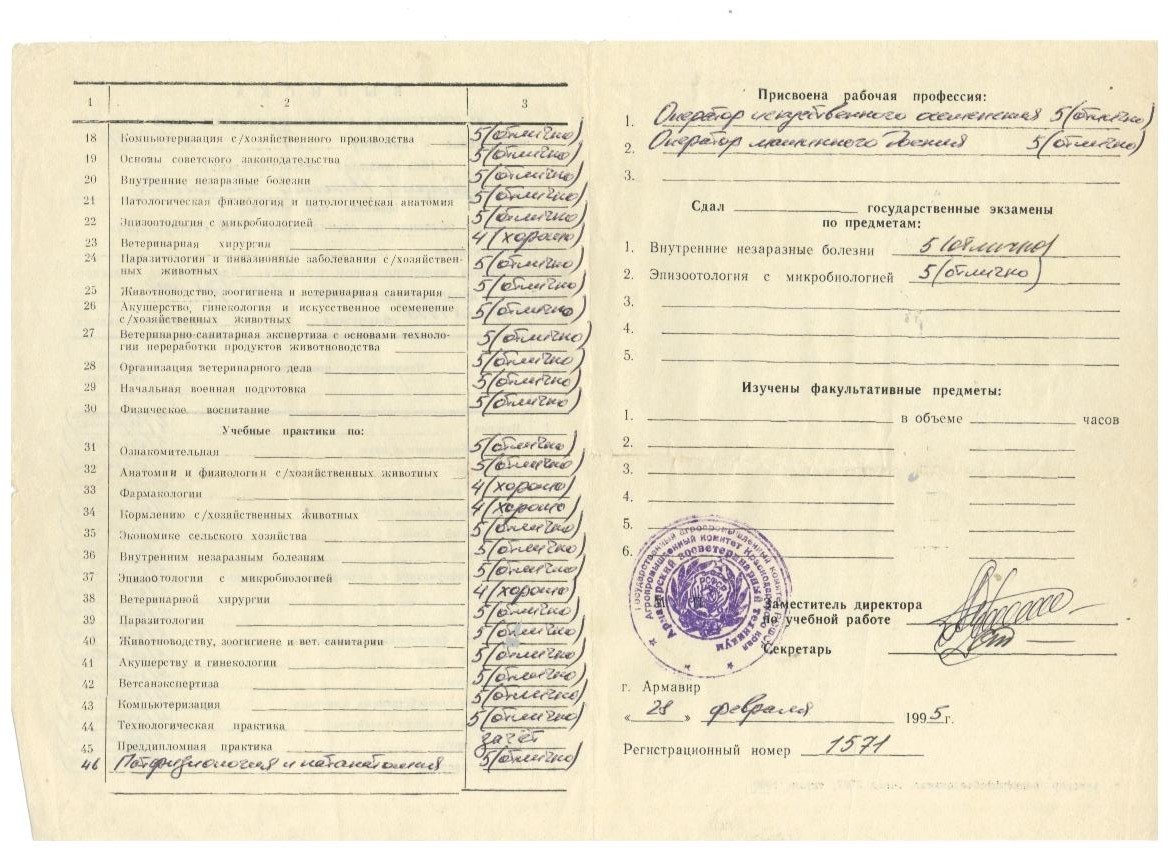 1 2 3
18 Компьютеризация с/хозяйственного производства 5 (отлично)
19 Основы советского законодательства 5 (отлично)
20 Внутренние незаразные болезни 5 (отлично)
21 Патологическая физиология и патологическая анатомия 5 (отлично)
22 Эпизоотология с микробиологией 5 (отлично)
23 Ветеринарная хирургия 4 (хорошо)
24 Паразитология и инвазионные заболевания с/хозяйствен-
ных животных 5 (отлично)
25 Животноводство, зоогигиена и ветеринарная санитария 5 (отлично)
26 Акушерство, гинекология и искусственное осеменение
с/хозяйственных животных 5 (отлично)
27 Ветеринарно-санитарная экспертиза с основами техноло-
гии переработки продуктов животноводства 5 (отлично)
28 Организация ветеринарного дела 5 (отлично)
29 Начальная военная подготовка 5 (отлично)
30 Физическое воспитание 5 (отлично)
Учебные практики по:
31 Ознакомительная 5 (отлично)
32 Анатомии и физиологии с/хозяйственных животных 5 (отлично)
33 Фармакологии 4 (хорошо)
34 Кормлению с/хозяйственных животных 4 (хорошо)
35 Экономике сельского хозяйства 5 (отлично)
36 Внутренним незаразным болезням 5 (отлично)
37 Эпизоотологии с микробиологией 5 (отлично)
38 Ветеринарной хирургии 4 (хорошо)
39 Паразитологии 5 (отлично)
40 Животноводству, зоогигиене и вет. санитарии 5 (отлично)
41 Акушерству и гинекологии 5 (отлично)
42 Ветсанэкспертиза 5 (отлично)
43 Компьютеризация 5 (отлично)
44 Технологическая практика 5 (отлично)
45 Преддипломная практика зачёт
46 Патфизиология и патанатомия 5 (отлично)
Присвоена рабочая профессия:
1. Оператор искуственного осеменения 5 (отлично)
2. Оператор машинного доения 5 (отлично)
3.
Сдал государственные экзамены
по предметам:
1. Внутренние незаразные болезни 5 (отлично)
2. Эпизоотология с микробиологией 5 (отлично)
3.
4.
5.
Изучены факультативные предметы:
1. в объеме часов
2.
3.
4.
5.
6.
Государственный агропромышленный комитет
Агропромышленный комитет Краснодарского края
Армавирский зооветеринарный техникум
РСФСР
Заместитель директора
по учебной работе
Секретарь
г. Армавир
« 28 » февраля 1995 г.
Регистрационный номер 1571